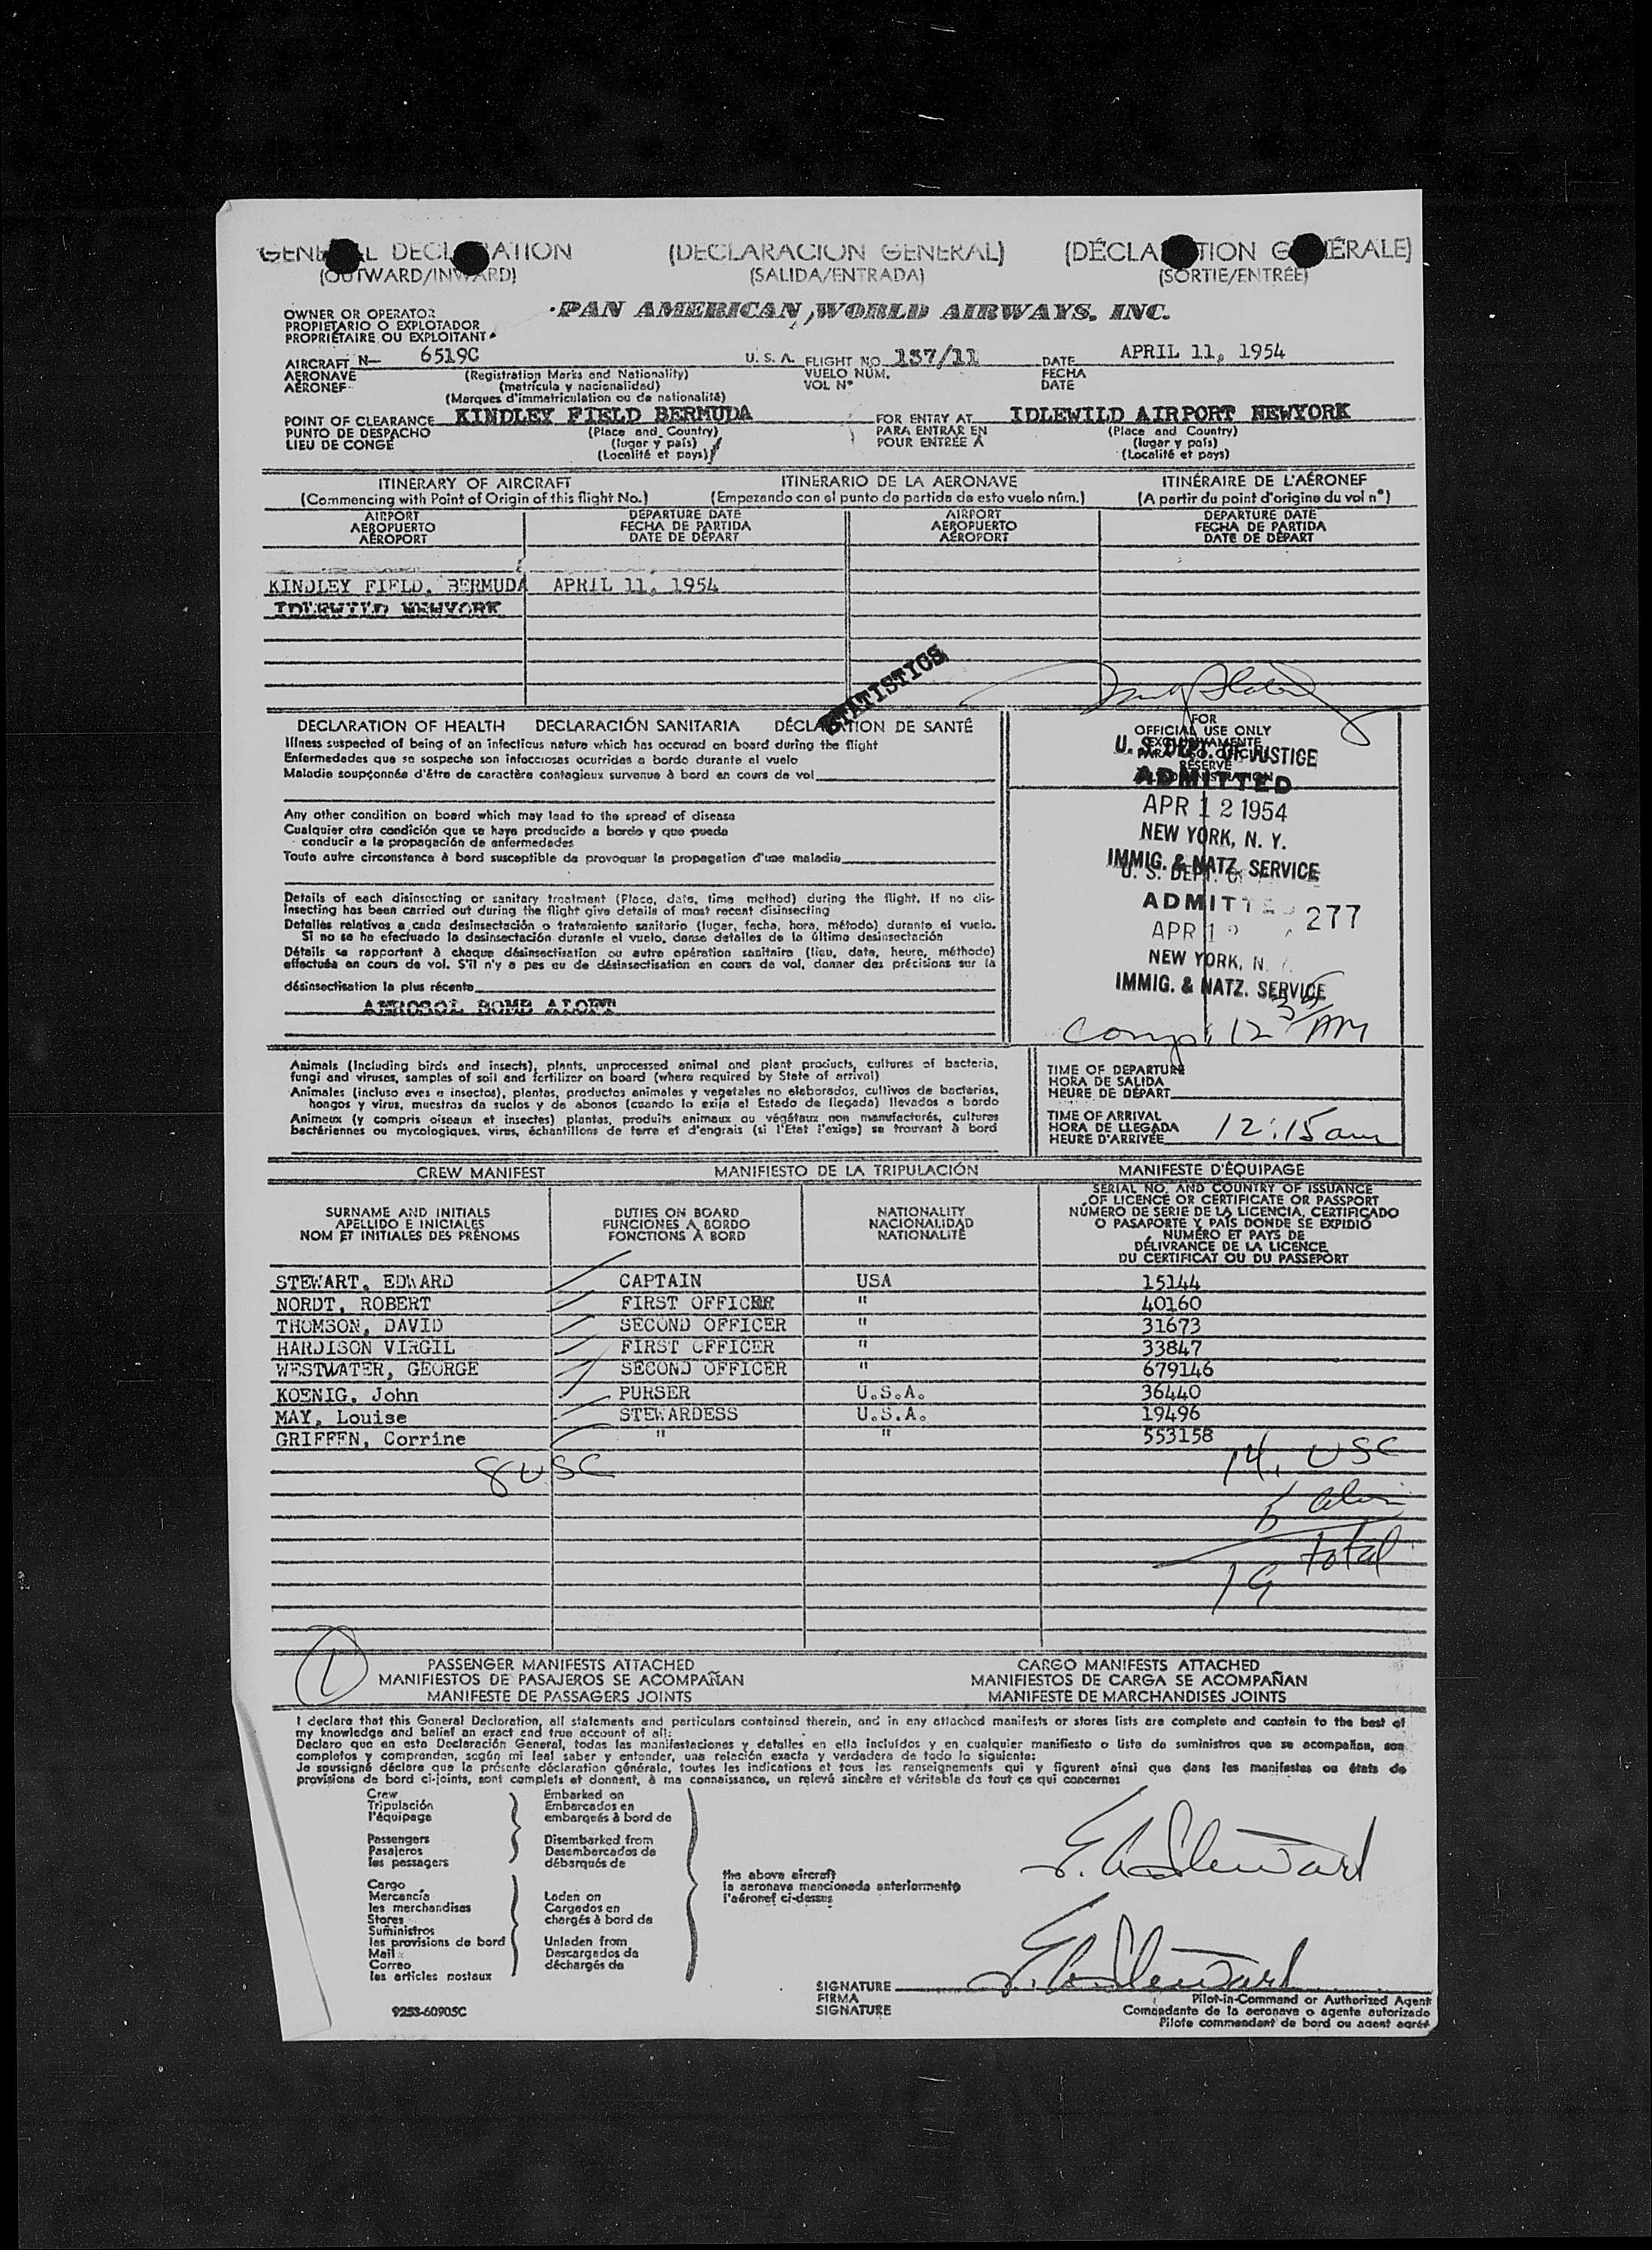 GENERAL DECLARATION (DECLARACION GENERAL) (DÉCLARATION GÉNÉRALE)
(OUTWARD/INWARD) (SALIDA/ENTRADA) (SORTIE/ENTRÉE)
OWNER OR OPERATOR
PROPIETARIO O EXPLOTADOR
PROPRIÉTAIRE OU EXPLOITANT
PAN AMERICAN WORLD AIRWAYS, INC.
AIRCRAFT N— 6519C U. S. A. FLIGHT NO. 137/11 DATE APRIL 11, 1954
AERONAVE (Registration Marks and Nationality) VUELO NÚM. FECHA
AÉRONEF (matrícula y nacionalidad) VOL N° DATE
(Marques d'immatriculation ou de nationalité)
POINT OF CLEARANCE KINDLEY FIELD BERMUDA FOR ENTRY AT IDLEWILD AIRPORT NEWYORK
PUNTO DE DESPACHO (Place and Country) PARA ENTRAR EN (Place and Country)
LIEU DE CONGÉ (lugar y país) POUR ENTRÉE À (lugar y país)
(Localité et pays) (Localité et pays)
ITINERARY OF AIRCRAFT ITINERARIO DE LA AERONAVE ITINÉRAIRE DE L'AÉRONEF
(Commencing with Point of Origin of this flight No.) (Empezando con el punto de partida de esto vuelo núm.) (A partir du point d'origine du vol n°)
AIRPORT DEPARTURE DATE AIRPORT DEPARTURE DATE
AEROPUERTO FECHA DE PARTIDA AEROPUERTO FECHA DE PARTIDA
AÉROPORT DATE DE DÉPART AÉROPORT DATE DE DÉPART
KINDLEY FIELD, BERMUDA APRIL 11, 1954
IDLEWILD NEWYORK
STATISTICS
DECLARATION OF HEALTH DECLARACIÓN SANITARIA DÉCLARATION DE SANTÉ
Illness suspected of being of an infectious nature which has occured on board during the flight
Enfermedades que se sospecha son infecciosas ocurridas a bordo durante el vuelo
Maladie soupçonnée d'être de caractère contagieux survenue à bord en cours de vol
Any other condition on board which may lead to the spread of disease
Cualquier otra condición que se haya producido a bordo y que pueda
conducir a la propagación de enfermedades
Toute autre circonstance à bord susceptible de provoquer la propagation d'une maladie
Details of each disinsecting or sanitary treatment (Place, date, time method) during the flight. If no dis-
insecting has been carried out during the flight give details of most recent disinsecting
Detalles relativos a cada desinsectación o tratamiento sanitario (lugar, fecha, hora, método) durante el vuelo.
Si no se ha efectuado la desinsectación durante el vuelo, danse detalles de la última desinsectación
Détails se rapportant à chaque désinsectisation ou autre opération sanitaire (lieu, date, heure, méthode)
effectuée en cours de vol. S'il n'y a pas eu de désinsectisation en cours de vol, donner des précisions sur la
désinsectisation la plus récente
AEROSOL BOMB ALOFT
FOR
OFFICIAL USE ONLY
U. S. DEPT. OF JUSTICE
ADMITTED
APR 12 1954
NEW YORK, N. Y.
IMMIG. & NATZ. SERVICE
U. S. DEPT. OF
ADMITTED 277
APR 12
NEW YORK, N.
IMMIG. & NATZ. SERVICE
Comp. 12 35 AM
Animals (Including birds and insects), plants, unprocessed animal and plant products, cultures of bacteria,
fungi and viruses, samples of soil and fertilizer on board (where required by State of arrival)
Animales (incluso aves e insectos), plantas, productos animales y vegetales no elaborados, cultivos de bacterias,
hongos y virus, muestras de suelos y de abonos (cuando lo exija el Estado de llegada) llevados a bordo
Animaux (y compris oiseaux et insectes) plantes, produits animaux ou végétaux non manufacturés, cultures
bactériennes ou mycologiques, virus, échantillons de terre et d'engrais (si l'État l'exige) se trouvant à bord
TIME OF DEPARTURE
HORA DE SALIDA
HEURE DE DÉPART
TIME OF ARRIVAL
HORA DE LLEGADA
HEURE D'ARRIVÉE 12:15 am
CREW MANIFEST MANIFIESTO DE LA TRIPULACIÓN MANIFESTE D'ÉQUIPAGE
SURNAME AND INITIALS
APELLIDO E INICIALES
NOM ET INITIALES DES PRÉNOMS
DUTIES ON BOARD
FUNCIONES A BORDO
FONCTIONS À BORD
NATIONALITY
NACIONALIDAD
NATIONALITÉ
SERIAL NO. AND COUNTRY OF ISSUANCE
OF LICENCE OR CERTIFICATE OR PASSPORT
NÚMERO DE SERIE DE LA LICENCIA, CERTIFICADO
O PASAPORTE Y PAÍS DONDE SE EXPIDIÓ
NUMÉRO ET PAYS DE
DÉLIVRANCE DE LA LICENCE
DU CERTIFICAT OU DU PASSEPORT
STEWART, EDWARD CAPTAIN USA 15144
NORDT, ROBERT FIRST OFFICER " 40160
THOMSON, DAVID SECOND OFFICER " 31673
HARDISON VIRGIL FIRST OFFICER " 33847
WESTWATER, GEORGE SECOND OFFICER " 679146
KOENIG, John PURSER U.S.A. 36440
MAY, Louise STEWARDESS U.S.A. 19496
GRIFFEN, Corrine " " 553158
8 USC 14, USC
5 alien
19 total
1
PASSENGER MANIFESTS ATTACHED CARGO MANIFESTS ATTACHED
MANIFIESTOS DE PASAJEROS SE ACOMPAÑAN MANIFIESTOS DE CARGA SE ACOMPAÑAN
MANIFESTE DE PASSAGERS JOINTS MANIFESTE DE MARCHANDISES JOINTS
I declare that this General Declaration, all statements and particulars contained therein, and in any attached manifests or stores lists are complete and contain to the best of
my knowledge and belief an exact and true account of all:
Declaro que en esta Declaración General, todas las manifestaciones y detalles en ella incluídos y en cualquier manifiesto o lista de suministros que se acompañan, son
completos y comprenden, según mi leal saber y entender, una relación exacta y verdadera de todo lo siguiente:
Je soussigné déclare que la présente déclaration générale, toutes les indications et tous les renseignements qui y figurent ainsi que dans les manifestes ou états de
provisions de bord ci-joints, sont complets et donnent, à ma connaissance, un relevé sincère et véritable de tout ce qui concerne:
Crew Embarked on
Tripulación Embarcados en
l'équipage embarqués à bord de
Passengers Disembarked from
Pasajeros Desembarcados de
les passagers débarqués de
the above aircraft
la aeronave mencionada anteriormente
l'aéronef ci-dessus
Cargo
Mercancía Laden on
les merchandises Cargados en
Stores chargés à bord de
Suministros
les provisions de bord Unladen from
Mail Descargados de
Correo déchargés de
les articles postaux
E. Stewart
E. Stewart
SIGNATURE
FIRMA
SIGNATURE
Pilot-in-Command or Authorized Agent
Comandante de la aeronave o agente autorizado
Pilote commandant de bord ou agent agréé
9253-60905C